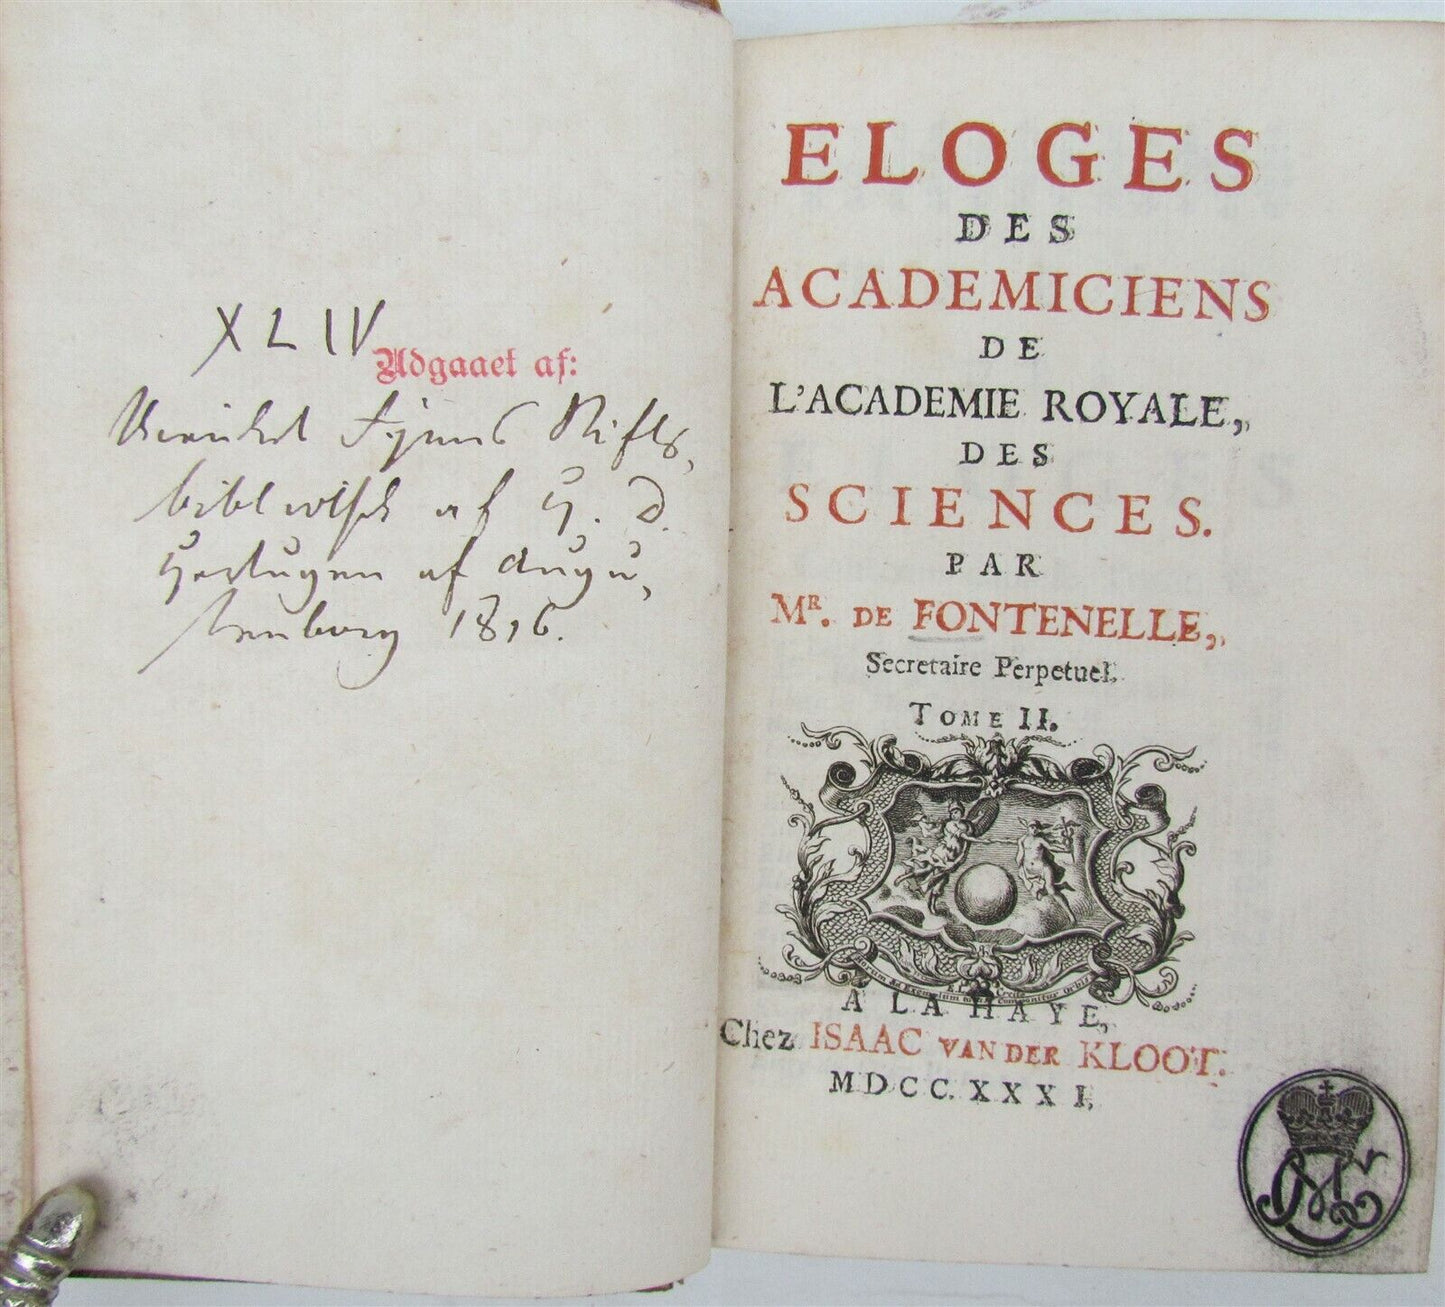 XLIV
Udgaaet af:
Fyens Stifts,
bibliothek af H. D.
Hertugen af Augu,
stenborg 18 6.
ELOGES
DES
ACADEMICIENS
DE
L'ACADEMIE ROYALE,
DES
SCIENCES.
PAR
MR. DE FONTENELLE,
Secretaire Perpetuel.
TOME II.
A LA HAYE,
Chez ISAAC VAN DER KLOOT.
MDCC.XXXI.